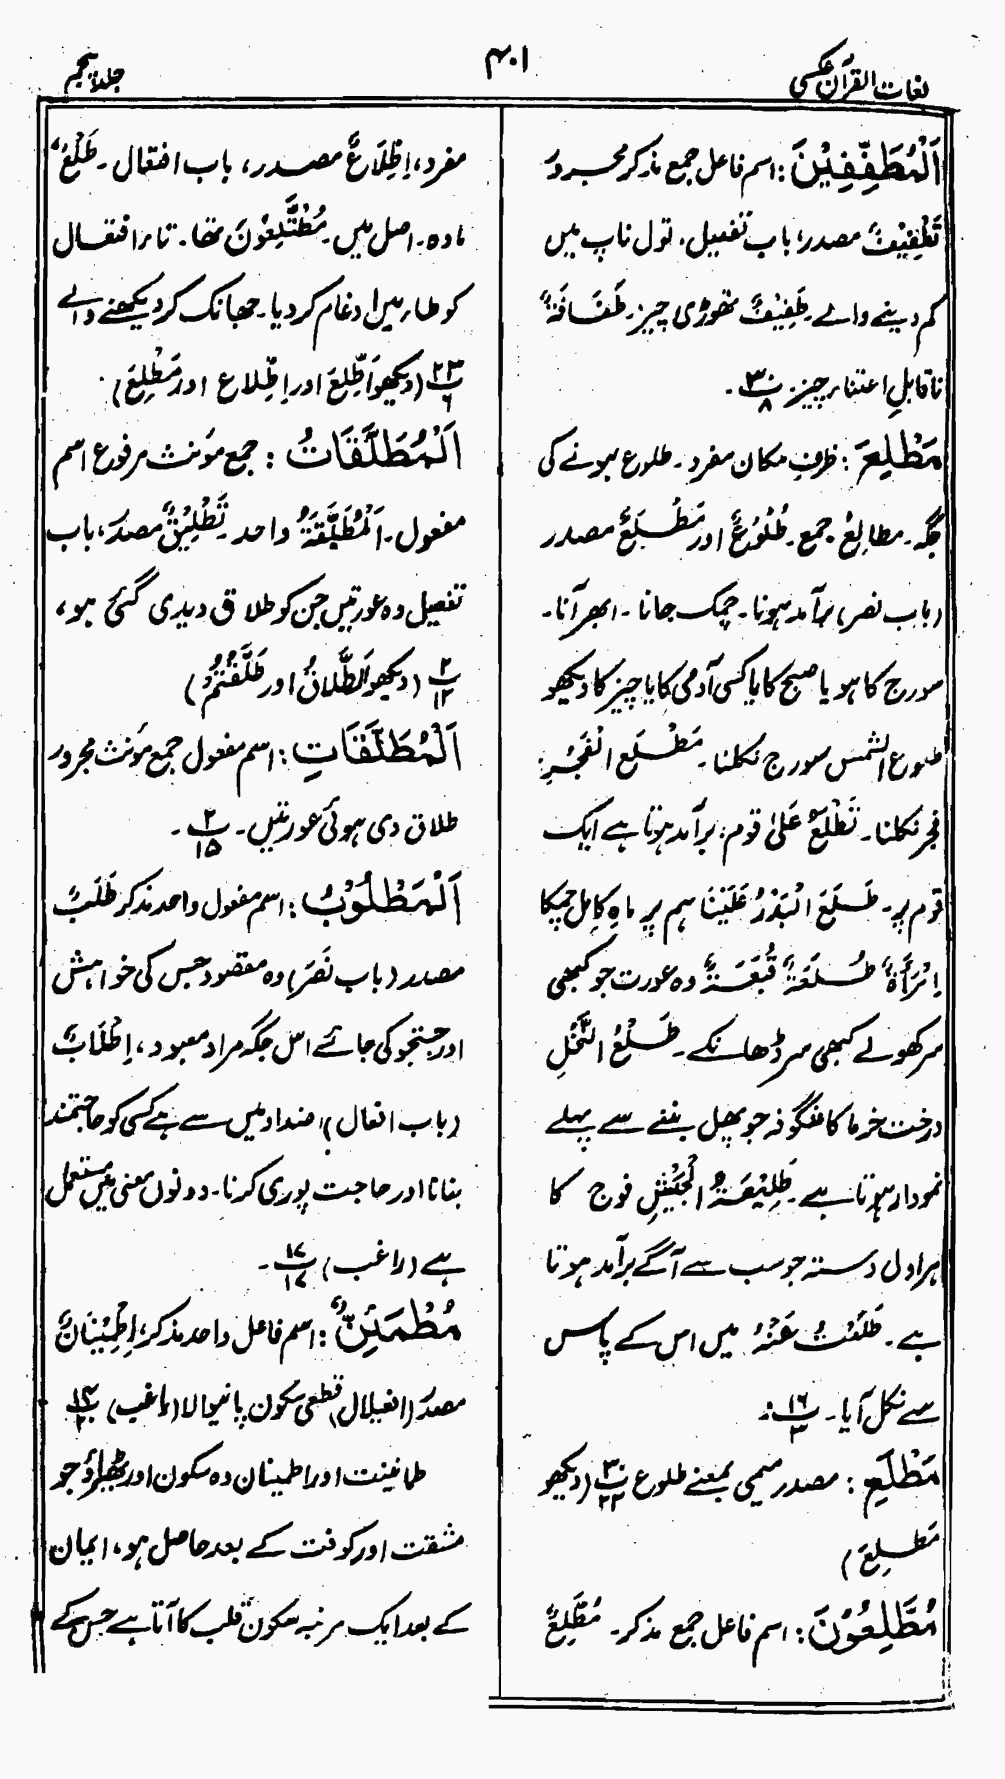 لغات القرآن عکسی
۴۰۱
جلد پنجم
اَلْمُطَفِّفِیْنَ: اسم فاعل جمع مذکر مجرور
تَطْفِیْفٌ مصدر، باب تفعیل، تول ناپ میں
کم دینے والے۔ طَفِیْفٌ تھوڑی چیز۔ طَفَافَۃٌ
ناقابلِ اعتناء چیز ۳۰/۸۔
مَطْلِعَ: ظرفِ مکان مفرد۔ طلوع ہونے کی
جگہ۔ مطالِعُ جمع۔ طُلُوْعٌ اور مَطْلَعٌ مصدر
(باب نصر) برآمد ہونا۔ چمک جانا۔ ابھر آنا۔
سورج کا ہو یا صبح کا یا کسی آدمی کا یا چیز کا دیکھو
طلوع الشمس سورج نکلنا۔ مَطْلَعِ الْفَجْرِ:
فجر نکلنا۔ تَطْلُعُ عَلیٰ قوم، برآمد ہوتا ہے ایک
قوم پر۔ طَلَعَ الْبَدْرُ عَلَیْنَا ہم پر ماہِ کامل چمکا
اِمْرَأَۃٌ طُلَعَۃٌ قُبَعَۃٌ وہ عورت جو کبھی
سر کھولے کبھی سر ڈھانکے۔ طَلْعُ النَّخْلِ
درخت خرما کا شگوفہ جو پھل بننے سے پہلے
نمودار ہوتا ہے۔ طَلِیْعَۃُ الْجَیْشِ فوج کا
ہراول دستہ جو سب سے آگے برآمد ہوتا
ہے۔ طَلَعْتُ عَنْہُ میں اس کے پاس
سے نکل آیا۔ ۱۶/۲
مَطْلَعِ: مصدر میمی بمعنے طلوع ۳۰/۲۲ (دیکھو
مَطْلِعَ)
مُطَّلِعُوْنَ: اسم فاعل جمع مذکر۔ مُطَّلِعٌ
مفرد، اِطِّلَاعٌ مصدر، باب افتعال۔ طَلْعٌ
مادہ۔ اصل میں۔ مُطْتَلِعُوْنَ تھا۔ تاء افتعال
کو طاء میں ادغام کر دیا۔ جھانک کر دیکھنے والے
۲۳/۶ (دیکھو اَطَّلَعَ اور اِطِّلاع اور مَطْلِعَ)
اَلْمُطَلَّقَاتُ: جمع مؤنث مرفوع اسم
مفعول۔ اَلْمُطَلَّقَۃُ واحد۔ تَطْلِیْقٌ مصدر، باب
تفعیل وہ عورتیں جن کو طلاق دیدی گئی ہو،
۲/۱۲ (دیکھو اَلطَّلَاقُ اور طَلَّقْتُمْ)
اَلْمُطَلَّقَاتِ: اسم مفعول جمع مؤنث مجرور
طلاق دی ہوئی عورتیں۔ ۲/۱۵۔
اَلْمَطْلُوْبُ: اسم مفعول واحد مذکر طَلَبٌ
مصدر (باب نَصَرَ) وہ مقصود جس کی خواہش
اور جستجو کی جائے اس جگہ مراد معبود، اِطْلَابٌ
(باب افعال)، اضداد میں سے ہے کسی کو حاجتمند
بنانا اور حاجت پوری کرنا۔ دونوں معنی میں مستعمل
ہے (راغب) ۱۷/۱۷۔
مُطْمَئِنٌّ: اسم فاعل واحد مذکر، اِطْمِیْنَانٌ
مصدر (افعیلال) قطعی سکون پانیوالا (راغب) ۱۴/۲
طمانینت اور اطمینان وہ سکون اور ٹھہراؤ جو
مشقت اور کوفت کے بعد حاصل ہو، ایمان
کے بعد ایک مرتبہ سکون قلب کا آتا ہے جس کے